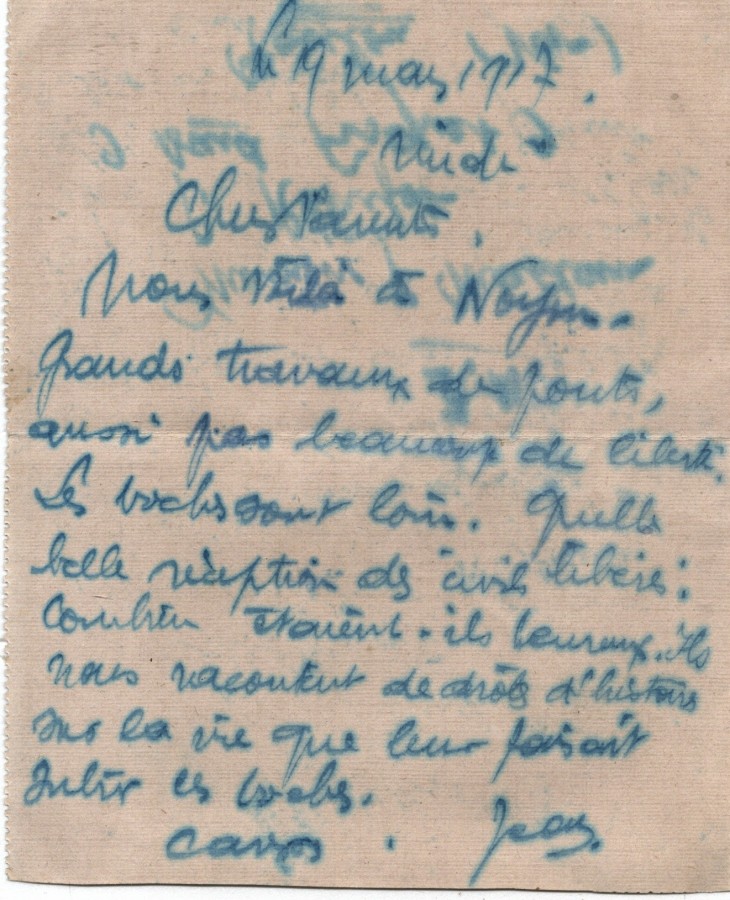 le 19 mars 1917.
Midi
Chers Parents,
Nous voilà à Noyon.
Grands travaux de ponts,
aussi pas beaucoup de liberté.
Les boches sont loin. Quelle
belle réception des civils libérés;
Combien étaient-ils heureux. Ils
nous racontent de drôles d'histoires
sur la vie que leur faisait
subir les boches.
Jean